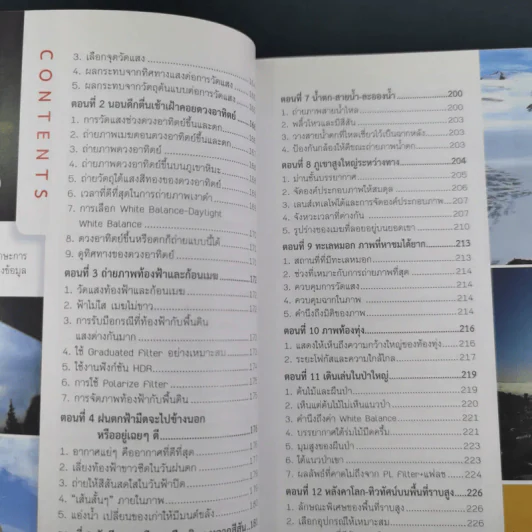 CONTENTS
3. เลือกจุดวัดแสง
4. ผลกระทบจากทิศทางแสงต่อการวัดแสง
5. ผลกระทบจากวัตถุต้นแบบต่อการวัดแสง
ตอนที่ 2 นอนดึกตื่นเช้าเฝ้าคอยดวงอาทิตย์
1. การวัดแสงช่วงดวงอาทิตย์ขึ้นและตก
2. ถ่ายภาพเมฆตอนดวงอาทิตย์ขึ้นและตก
3. ถ่ายภาพดวงอาทิตย์
4. ถ่ายภาพดวงอาทิตย์ขึ้นบนภูเขาหิมะ
5. ถ่ายวัตถุใต้แสงสีทองของดวงอาทิตย์
6. เวลาที่ดีที่สุดในการถ่ายภาพเงาดำ
7. การเลือก White Balance-Daylight
White Balance
8. ดวงอาทิตย์ขึ้นหรือตกก็ถ่ายแบบนี้ได้
9. ดูทิศทางของดวงอาทิตย์
ตอนที่ 3 ถ่ายภาพท้องฟ้าและก้อนเมฆ
1. วัดแสงท้องฟ้าและก้อนเมฆ
2. ฟ้าไม่ใส เมฆไม่ขาว
3. การรับมือกรณีที่ท้องฟ้ากับพื้นดิน
แสงต่างกันมาก
4. ใช้ Graduated Filter อย่างเหมาะสม
5. ใช้งานฟังก์ชัน HDR
6. การใช้ Polarize Filter
7. การจัดภาพท้องฟ้ากับพื้นดิน
ตอนที่ 4 ฝนตกฟ้ามืดจะไปข้างนอก
หรืออยู่เฉยๆ ดี
1. อากาศแย่ๆ คืออากาศที่ดีที่สุด
2. เลี่ยงท้องฟ้าขาวซีดในวันฝนตก
3. ถ่ายให้สีสันสดใสในวันฟ้าปิด
4. "เส้นสั้นๆ" ภายในภาพ
5. แอ่งน้ำ เปลี่ยนของเก่าให้มีมนต์ขลัง
ตอนที่ 7 น้ำตก-สายน้ำ-ละอองน้ำ 200
1. ถ่ายภาพสายน้ำไหล 200
2. พลิ้วไหวและมีสีสัน 203
3. วางสายน้ำตกที่ไหลเชี่ยวไว้เป็นฉากหลัง 203
4. ป้องกันกล้องให้ดีขณะถ่ายภาพน้ำตก 203
ตอนที่ 8 ภูเขาสูงใหญ่ระหว่างทาง 204
1. ม่านชั้นบรรยากาศ 205
2. จัดองค์ประกอบภาพให้สมดุล 206
3. เลนส์เทเลโฟโต้และการจัดองค์ประกอบภาพ 207
4. จังหวะเวลาที่ต่างกัน 207
5. รูปร่างของเมฆที่ลอยอยู่บนยอดเขา 210
ตอนที่ 9 ทะเลหมอก ภาพที่หาชมได้ยาก 213
1. สถานที่ที่มีทะเลหมอก 214
2. ช่วงที่เหมาะกับการถ่ายภาพที่สุด 214
3. ควบคุมการวัดแสง 214
4. ควบคุมฉากในภาพ 214
5. คำนึงถึงมิติของภาพ 214
ตอนที่ 10 ภาพท้องทุ่ง 216
1. แสดงให้เห็นถึงความกว้างใหญ่ของท้องทุ่ง 216
2. ระยะโฟกัสและความใกล้ไกล 217
ตอนที่ 11 เดินเล่นในป่าใหญ่ 219
1. ต้นไม้และผืนป่า 219
2. เห็นแต่ต้นไม้ไม่เห็นแนวป่า 220
3. คำนึงถึงค่า White Balance 221
4. บรรยากาศใต้ร่มไม้มืดครึ้ม 221
5. มุมสูงของผืนป่า 223
6. โต้แนวป่าเขา 223
7. ผลลัพธ์ที่คาดไม่ถึงจาก PL Filter+แฟลช 224
ตอนที่ 12 หลังคาโลก-ทิวทัศน์บนพื้นที่ราบสูง 226
1. ลักษณะพิเศษของพื้นที่ราบสูง 226
2. เลือกอุปกรณ์ให้เหมาะสม